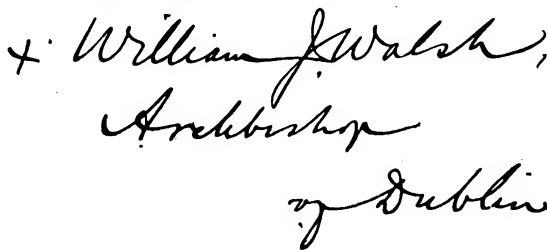 + William J. Walsh,
Archbishop
of Dublin